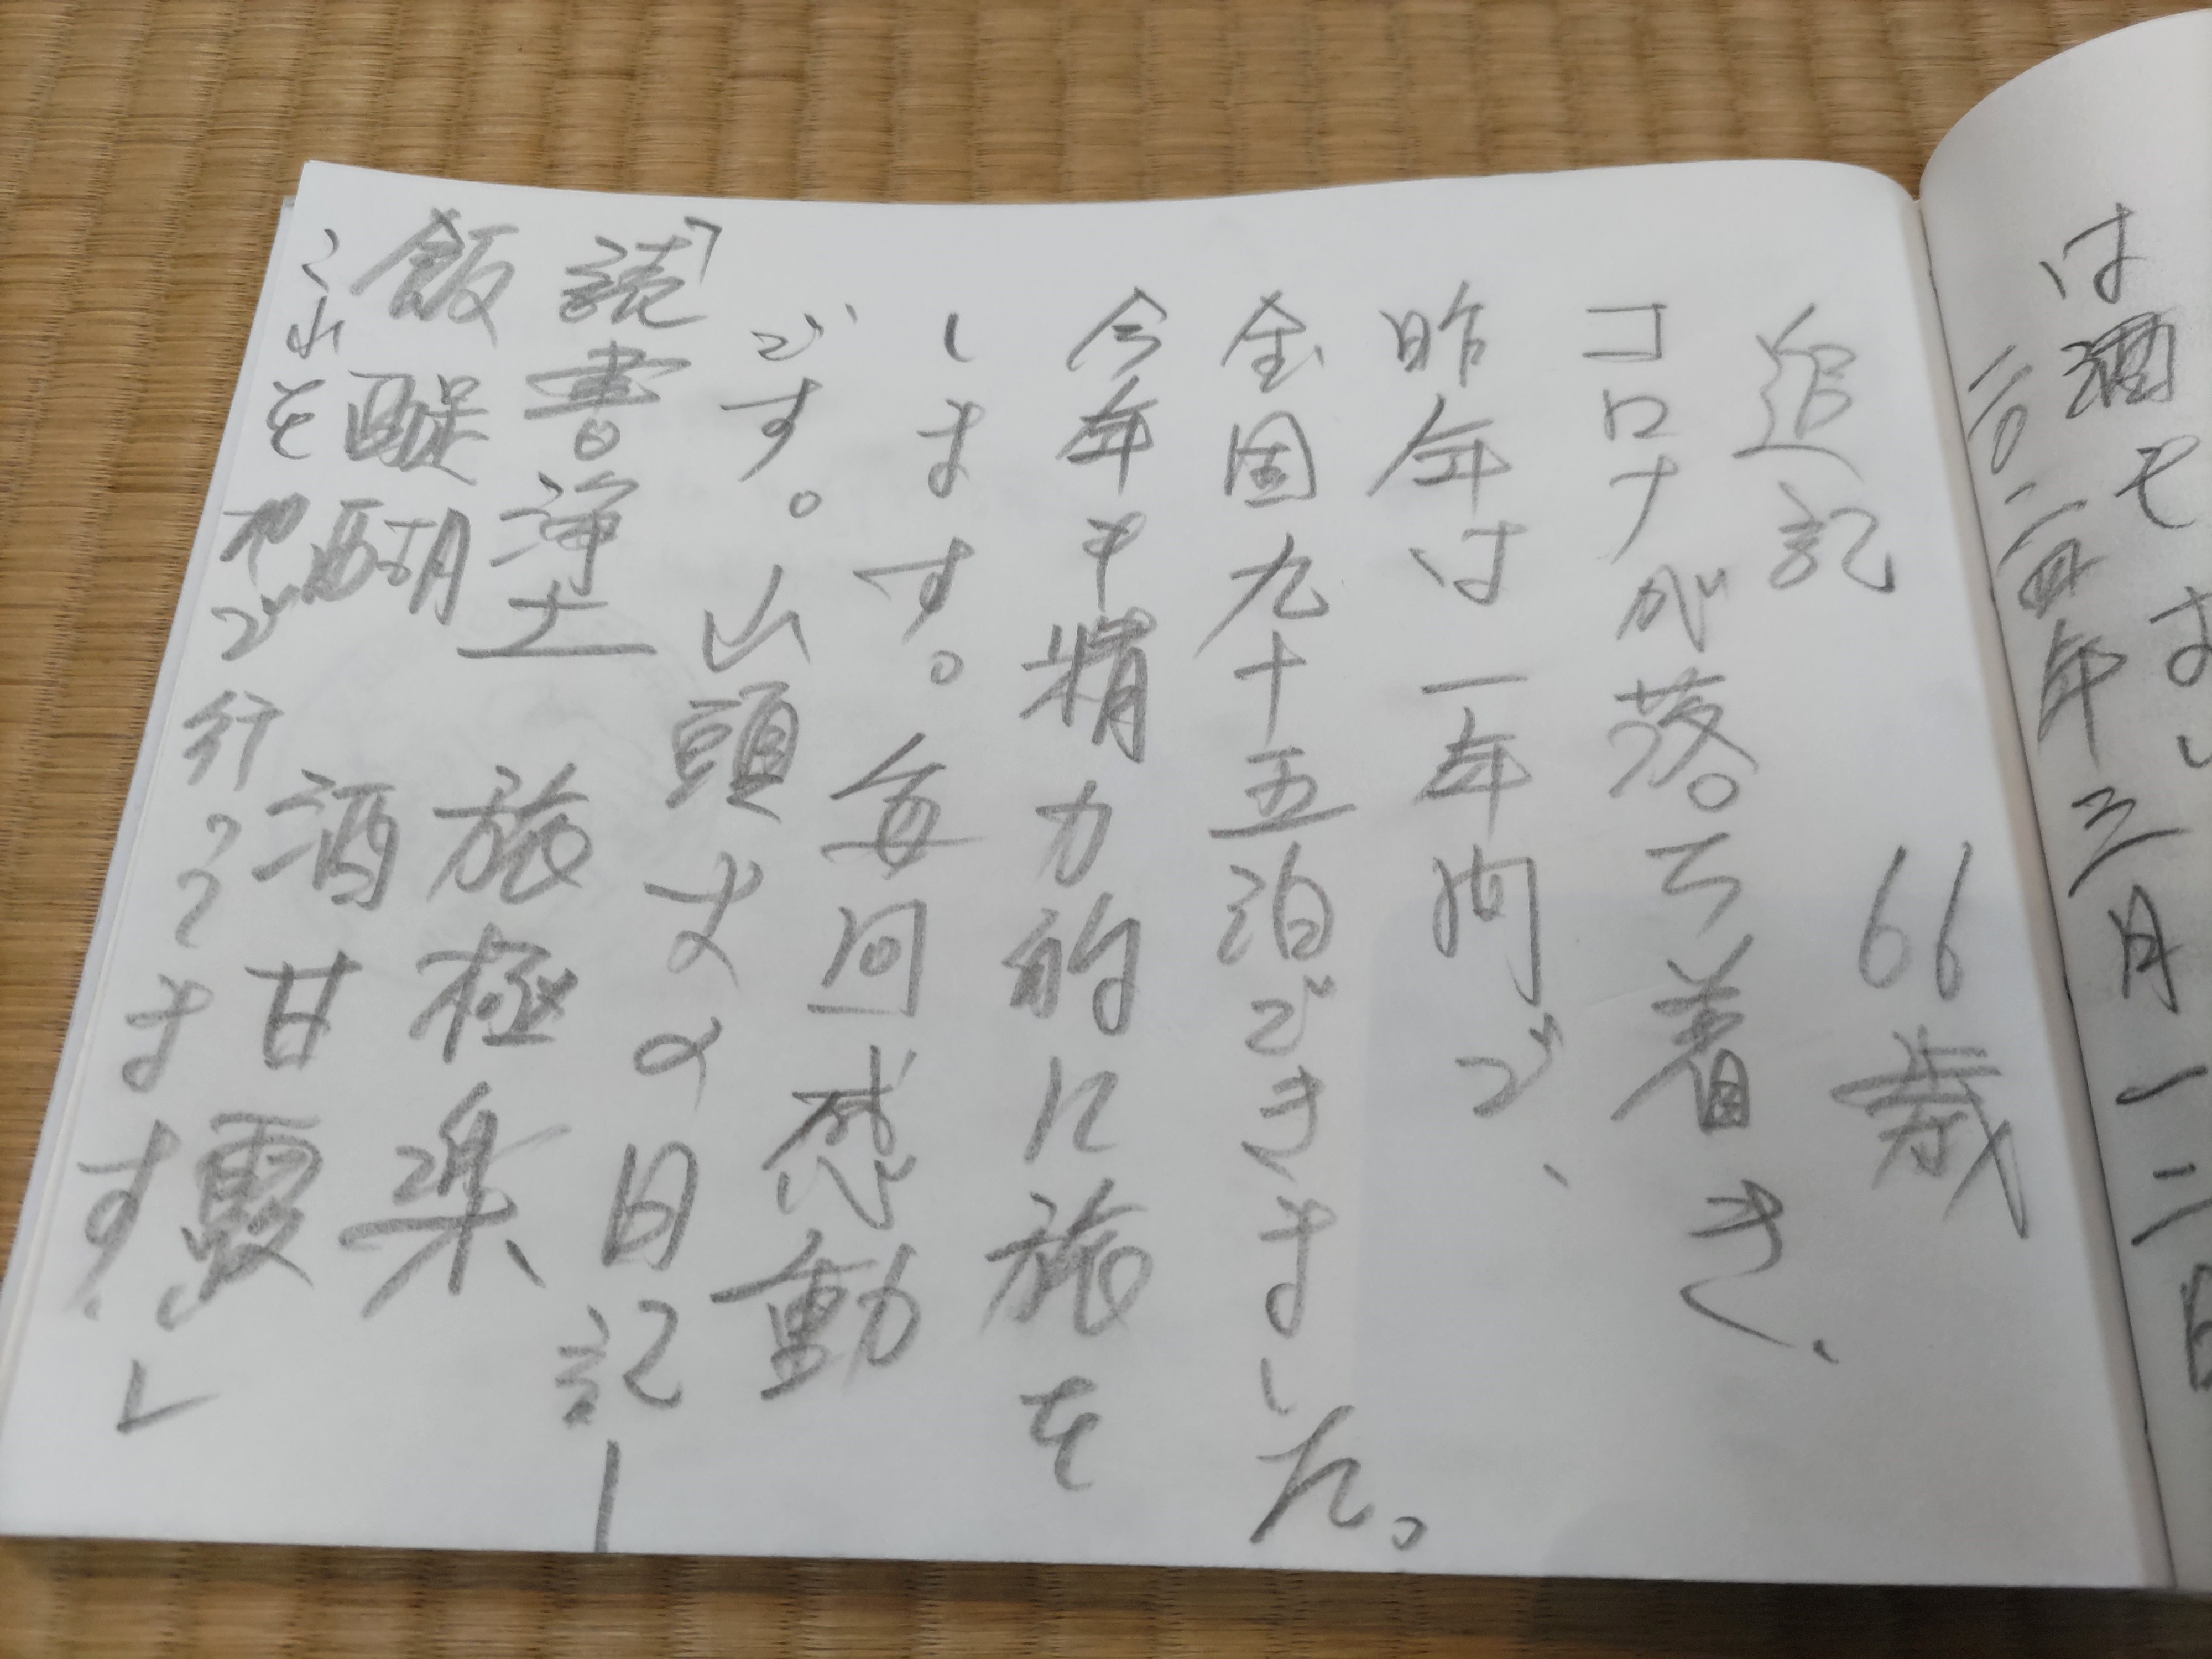 は酒もよし
二〇二四年三月一二日
追記　66歳
コロナが落ち着き、
昨年は一年間で、
全国九十五泊できました。
今年も精力的に旅を
します。毎回感動
です。山頭火の日記ー
「読書浄土　旅極楽
飯醍醐　酒甘露
これを地で行ってます。」